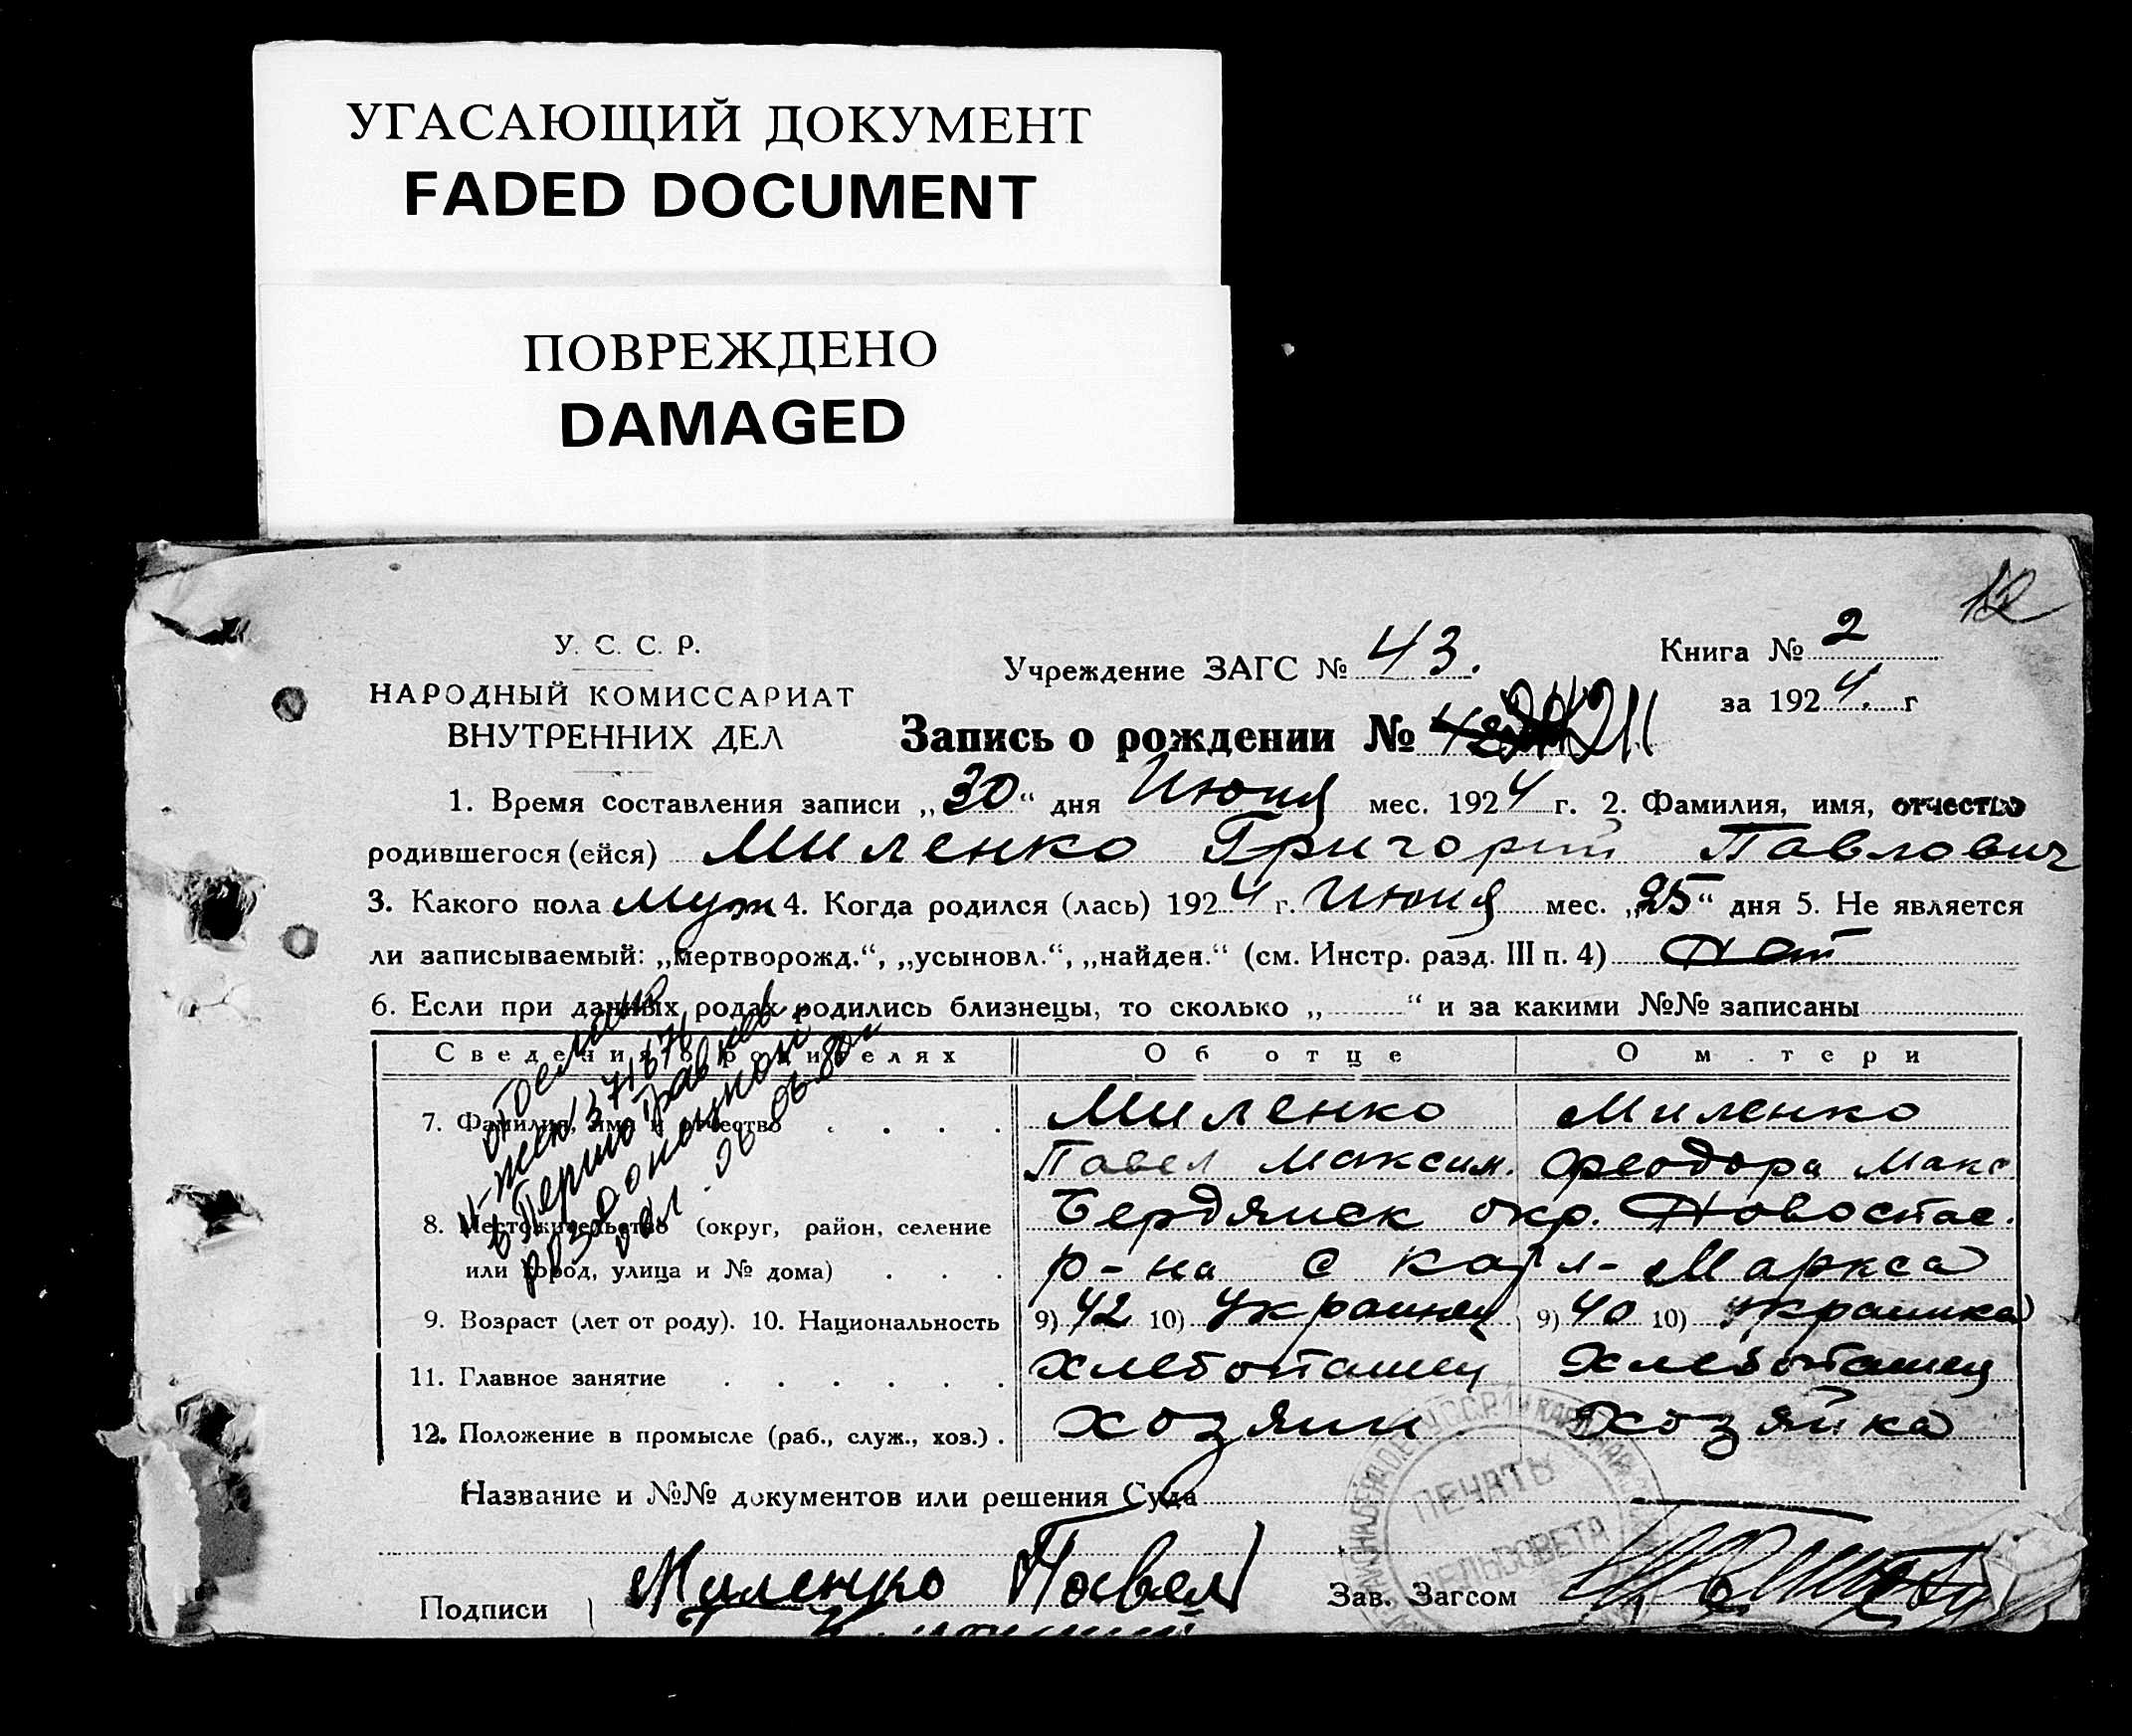 УГАСАЮЩИЙ ДОКУМЕНТ
FADED DOCUMENT
ПОВРЕЖДЕНО
DAMAGED
12
У. С. С. Р.
НАРОДНЫЙ КОМИССАРИАТ
ВНУТРЕННИХ ДЕЛ
Учреждение ЗАГС № 43.
Книга № 2
за 1924. г
Запись о рождении № 211
1. Время составления записи „30“ дня Июня мес. 1924 г. 2. Фамилия, имя, отчество
родившегося (ейся) Миленко Григорий Павлович
3. Какого пола муж 4. Когда родился (лась) 1924 г. Июня мес. „25“ дня 5. Не является
ли записываемый: „мертворожд.“, „усыновл.“, „найден.“ (см. Инстр. разд. III п. 4) Нет
6. Если при данных родах родились близнецы, то сколько „ “ и за какими №№ записаны
Сведения о родителях Об отце О м тери
7. Фамилия, имя и отчество Миленко Миленко
Павел Максим. Феодора Макс
8. Местожительство (округ, район, селение Бердянск окр. Новоспас.
или город, улица и № дома) р-на с Карл-Маркса
9. Возраст (лет от роду). 10. Национальность 9) 42 10) Украинец 9) 40 10) Украинка
11. Главное занятие Хлебопашец Хлебопашец
12. Положение в промысле (раб., служ., хоз.) Хозяин Хозяйка
Название и №№ документов или решения Суда
ПЕЧАТЬ
СЕЛЬСОВЕТА
Подписи Миленко Павел Зав. Загсом